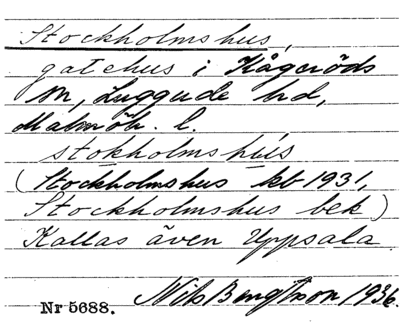 Stockholmshus,
gatehus i Kågeröds
sn, Luggude hd,
Malmöh. l.
stokholmshús
(Stockholmshus kb 1931,
Stockholmshus bek)
Kallas även Uppsala
Nils Bengtsson 1936.
Nr 5688.